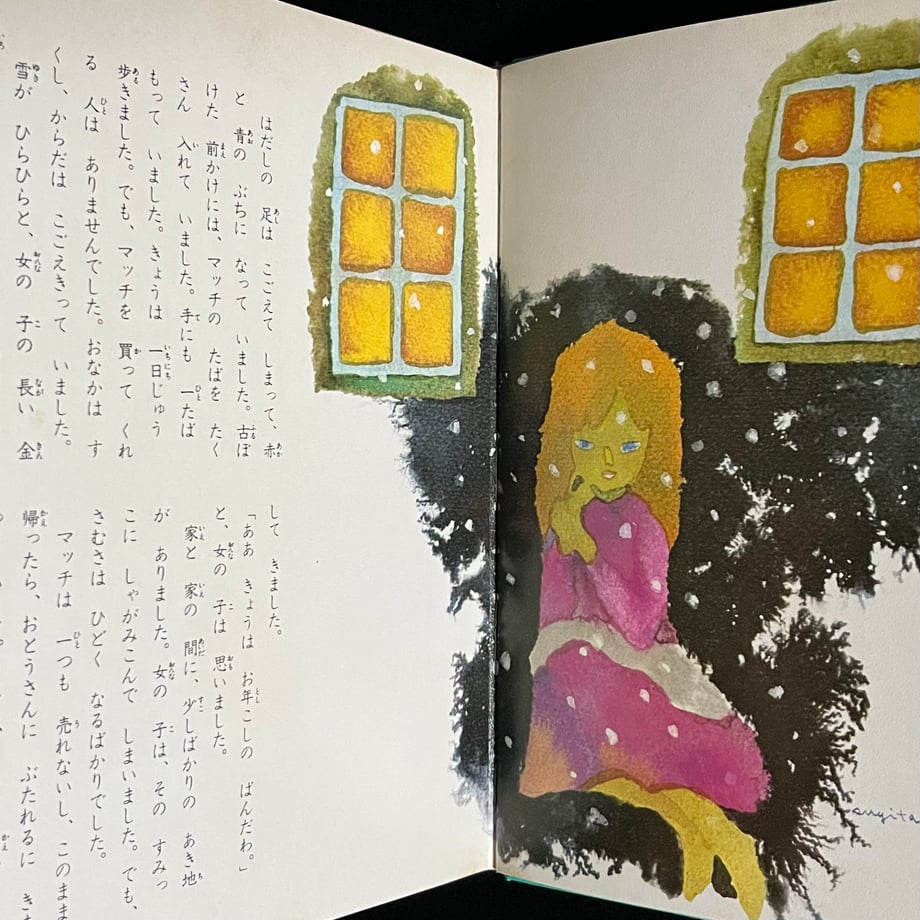 はだしの 足は こごえて しまって、赤
と 青の ぶちに なって いました。古ぼ
けた 前かけには、マッチの たばを たく
さん 入れて いました。手にも 一たば
もって いました。きょうは 一日じゅう
歩きました。でも、マッチを 買って くれ
る 人は ありませんでした。おなかは す
くし、からだは こごえきって いました。
雪が ひらひらと、女の 子の 長い 金
して きました。
「ああ きょうは お年こしの ばんだわ。」
と、女の 子は 思いました。
家と 家の 間に、少しばかりの あき地
が ありました。女の 子は、その すみっ
こに しゃがみこんで しまいました。でも、
さむさは ひどく なるばかりでした。
マッチは 一つも 売れないし、このまま
帰ったら、おとうさんに ぶたれるに き
sugita